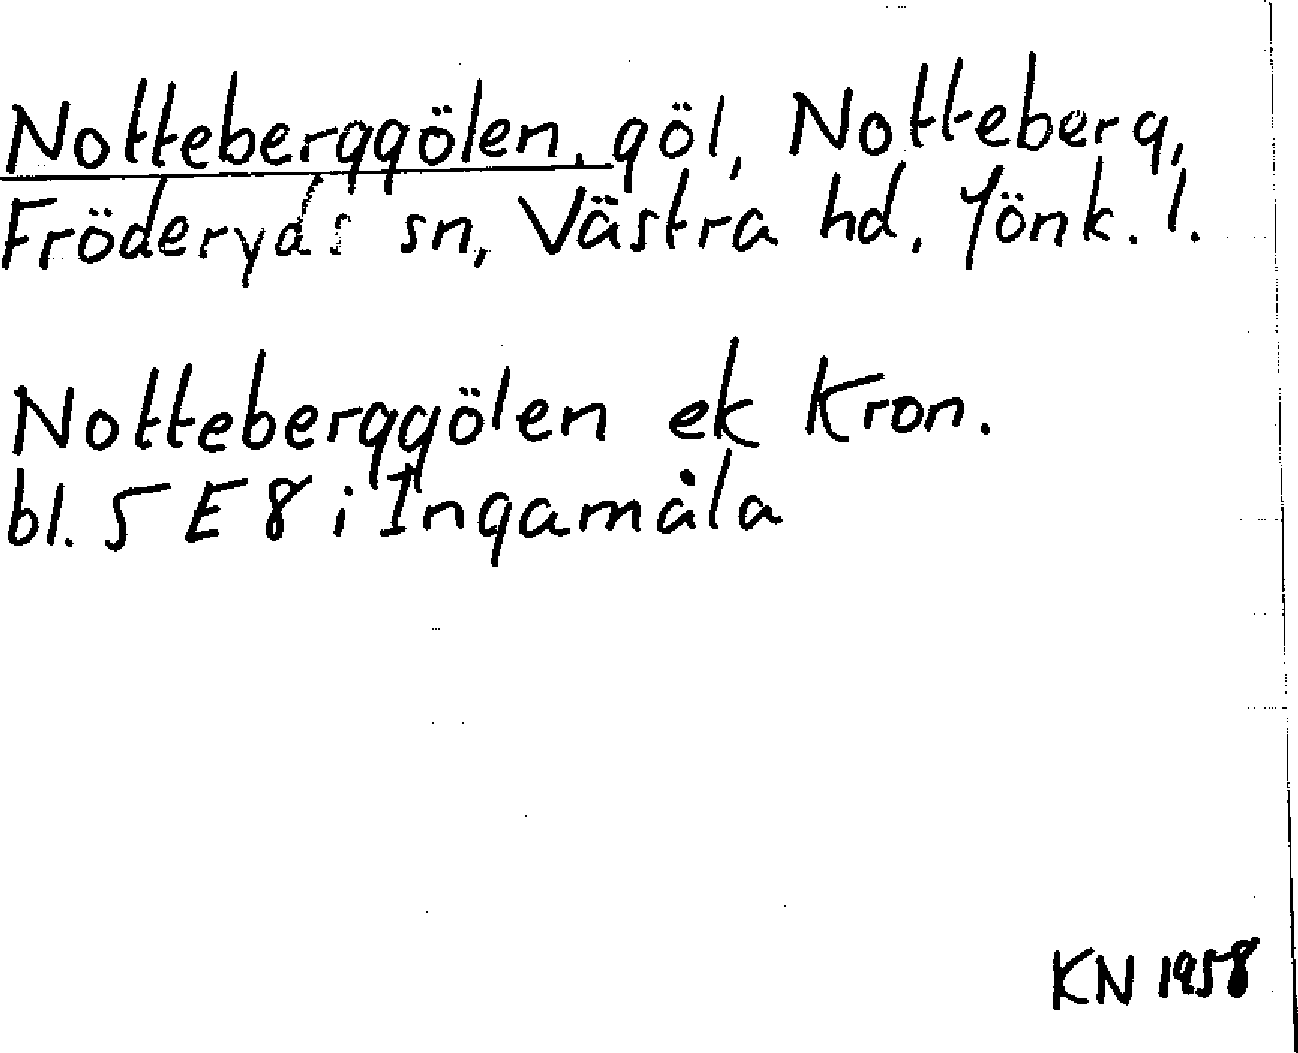 Notteberggölen, göl, Notteberg,
Fröderyds sn, Västra hd, Jönk. l.
Notteberggölen ek Kron.
bl. 5 E 8 i Ingamåla
KN 1958